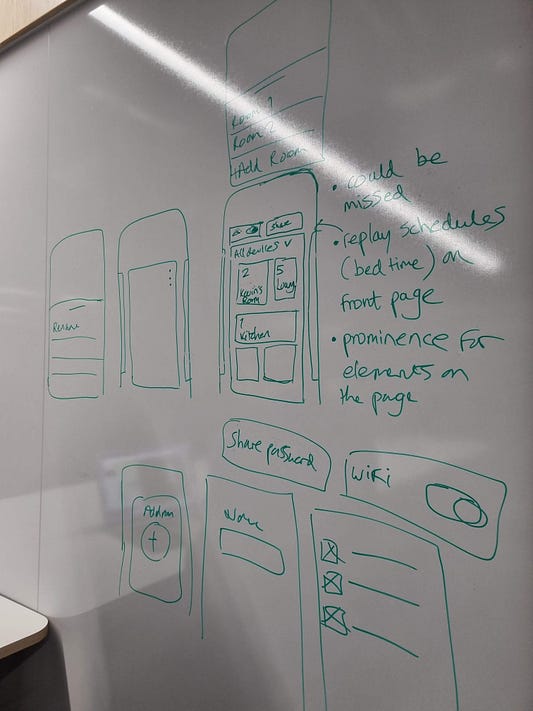 Room 1
Room 2
+Add Room
Share
All devices v
2
5
Kevin's
Room
1
Kitchen
Rename
• could be
missed
• replay schedules
(bed time) on
front page
• prominence for
elements on
the page
Share password
WiFi
Add rm
+
Name